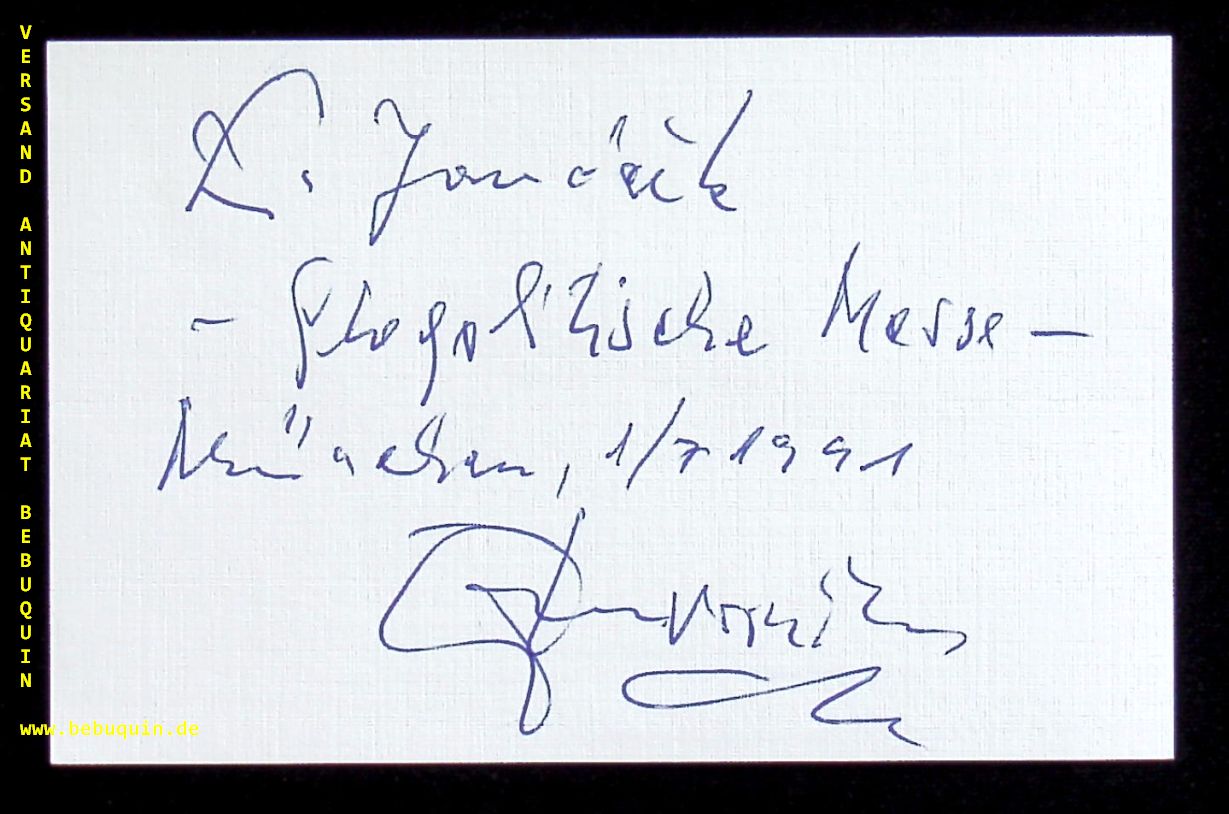 VERSAND ANTIQUARIAT BEBUQUIN
L. Janáček
- Glagolitische Messe -
München, 1/7 1991
www.bebuquin.de